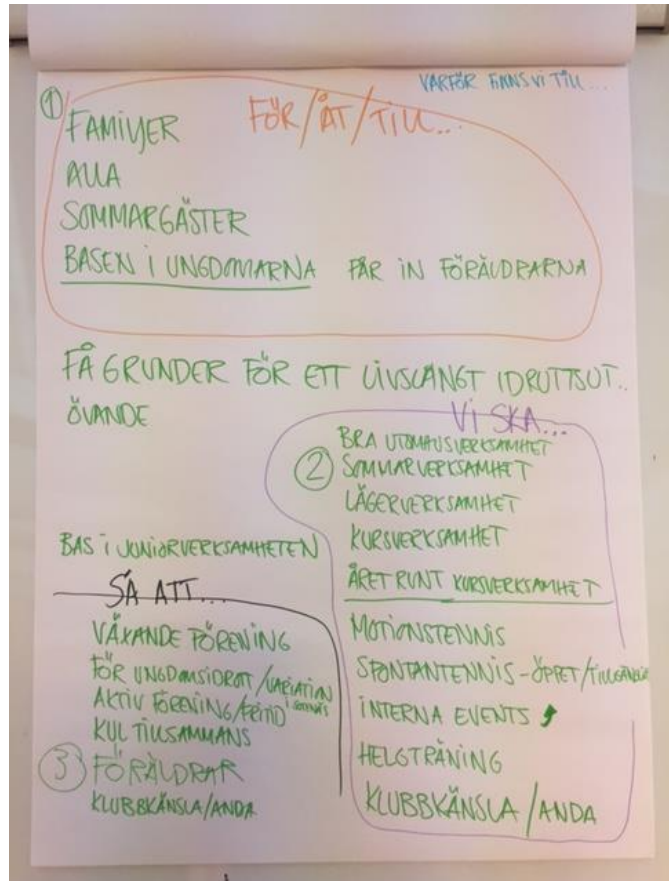 VARFÖR FINNS VI TILL...
① FÖR/ÅT/TILL...
FAMILJER
ALLA
SOMMARGÄSTER
BASEN I UNGDOMARNA FÅR IN FÖRÄLDRARNA
FÅ GRUNDER FÖR ETT LIVSLÅNGT IDROTTSUT..
ÖVANDE
VI SKA...
②
BRA UTOMHUSVERKSAMHET
SOMMARVERKSAMHET
LÄGERVERKSAMHET
KURSVERKSAMHET
ÅRET RUNT KURSVERKSAMHET
MOTIONSTENNIS
SPONTANTENNIS - ÖPPET/TILLGÄNGLIG
INTERNA EVENTS
HELGTRÄNING
KLUBBKÄNSLA/ANDA
BAS I JUNIORVERKSAMHETEN
SÅ ATT...
VÄXANDE FÖRENING
FÖR UNGDOMSIDROTT/VARIATION
AKTIV FÖRENING/FRITID
KUL TILLSAMMANS
③ FÖRÄLDRAR
KLUBBKÄNSLA/ANDA